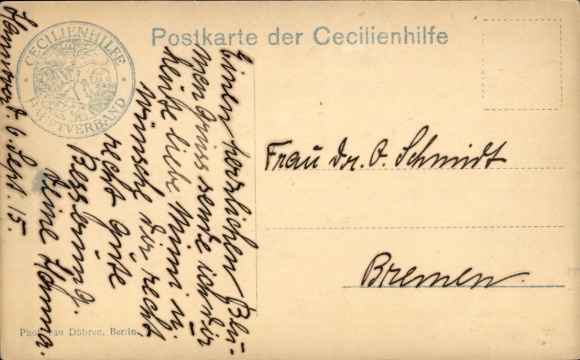 Postkarte der Cecilienhilfe
CECILIENHILFE
HAUPTVERBAND
Hannover d. 6. Sept. 15.
Einen herzlichen Blu-
mengruss sende ich dir
heute liebe Mimi u.
wünsche dir recht
recht gute
Besserung.
Deine Hanna.
Frau Dr. O. Schmidt
Bremen.
Phot. van Dühren, Berlin